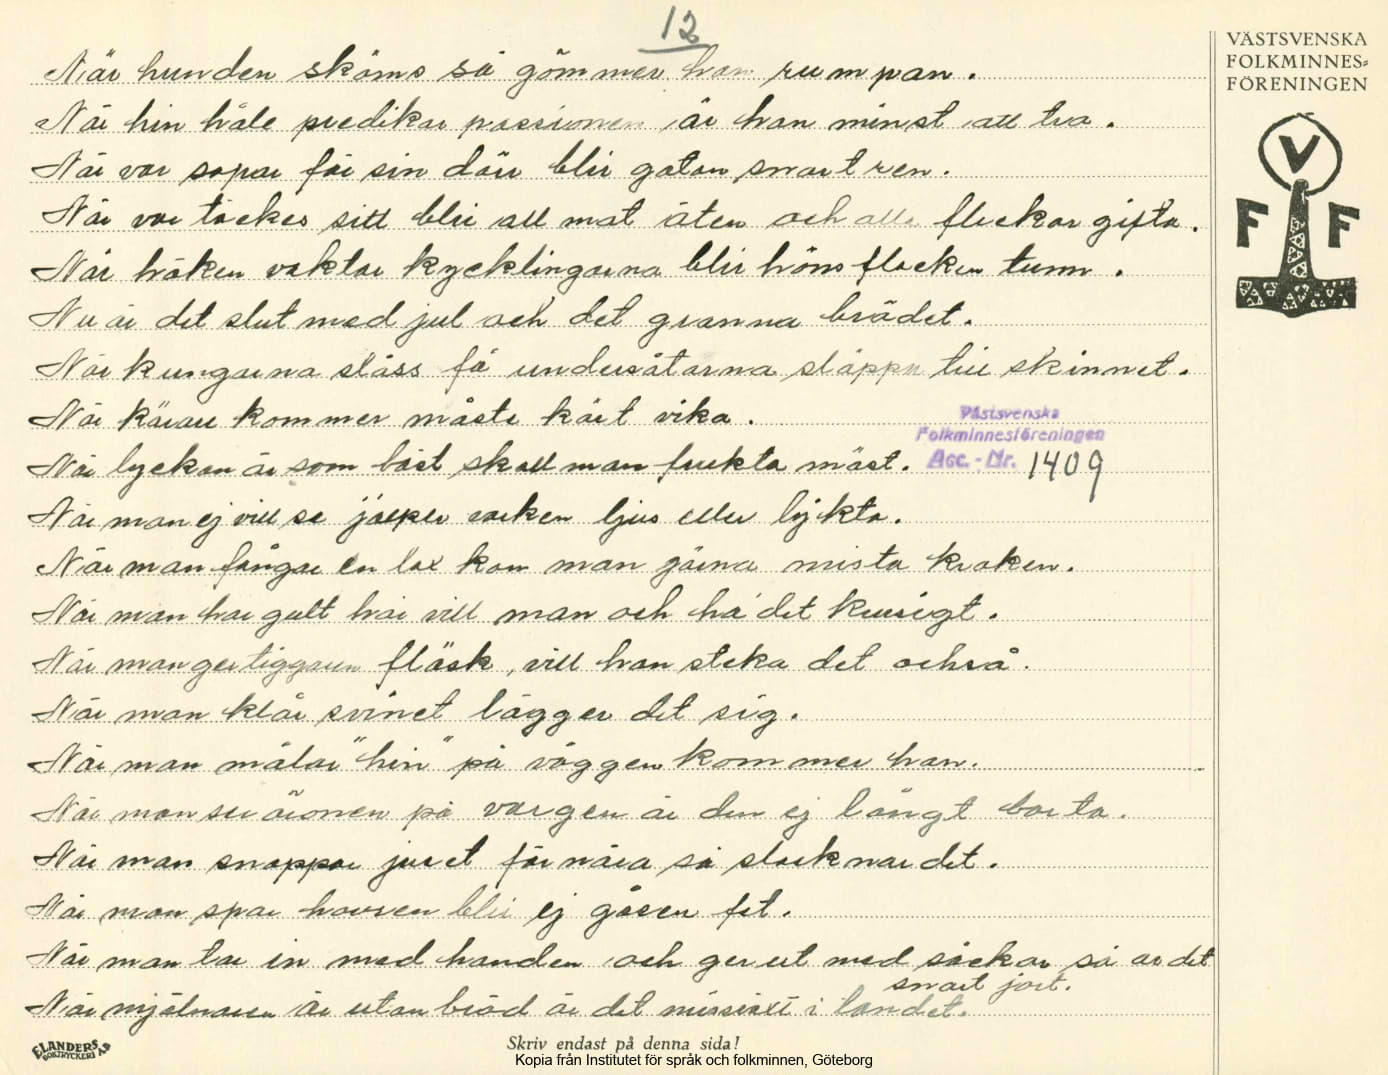 12
VÄSTSVENSKA
FOLKMINNES-
FÖRENINGEN
V
F F
När hunden skäms så gömmer han rumpan.
När hin håle predikar passionen är han minst att tro.
När var sopar för sin dörr blir gatan snart ren.
När var täckes sitt blir all mat äten och alla flickor gifta.
När höken vaktar kycklingarna blir hönsflocken tunn.
Nu är det slut med jul och det granna brödet.
När kungarna slåss få undersåtarna släppa till skinnet.
När kärare kommer måste kärt vika.
Västsvenska
Folkminnesföreningen
Acc. - Nr. 1409
När lyckan är som bäst skall man frukta mäst.
När man ej vill se jälper varken ljus eller lykta.
När man fångar en lax kan man gärna mista kroken.
När man har gult hår vill man och ha det krusigt.
När man ger tiggaren fläsk, vill han steka det också.
När man klår svinet lägger det sig.
När man målar "hin" på väggen kommer han.
När man ser öronen på vargen är den ej långt borta.
När man snoppar juset för nära så slocknar det.
När man spar havren blir ej gåsen fet.
När man tar in med handen och ger ut med säckar så är det
snart jort.
När mjölnaren är utan bröd är det missväxt i landet.
ELANDERS
BOKTRYCKERI AB
Skriv endast på denna sida!
Kopia från Institutet för språk och folkminnen, Göteborg